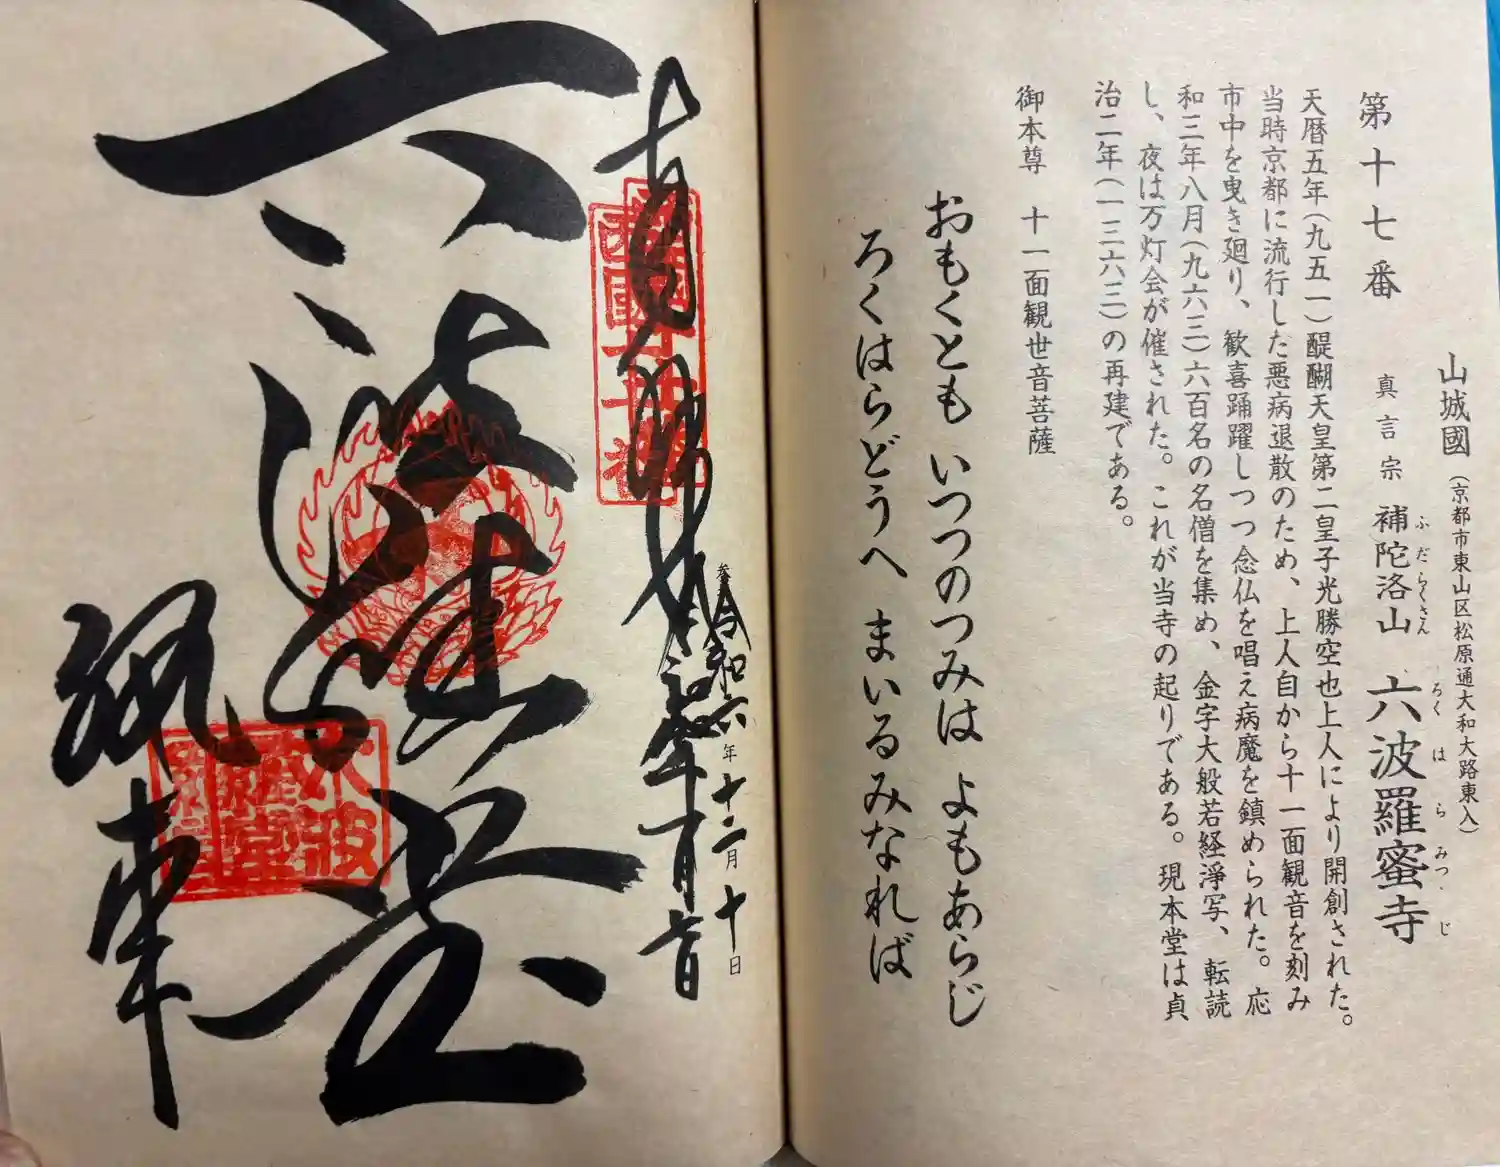 山城國(京都市東山区松原通大和大路東入)
第十七番 真言宗 補陀洛山 六波羅蜜寺
ふだらくさん ろくはらみつじ
天暦五年(九五一)醍醐天皇第二皇子光勝空也上人により開創された。
当時京都に流行した悪病退散のため、上人自から十一面観音を刻み
市中を曳き廻り、歓喜踊躍しつつ念仏を唱え病魔を鎮められた。応
和三年八月(九六三)六百名の名僧を集め、金字大般若経浄写、転読
し、夜は万灯会が催された。これが当寺の起りである。現本堂は貞
治二年(一三六三)の再建である。
御本尊 十一面観世音菩薩
おもくとも いつつのつみは よもあらじ
ろくはらどうへ まいるみなれば
令和六年十二月十日
西國十七番
六波羅堂